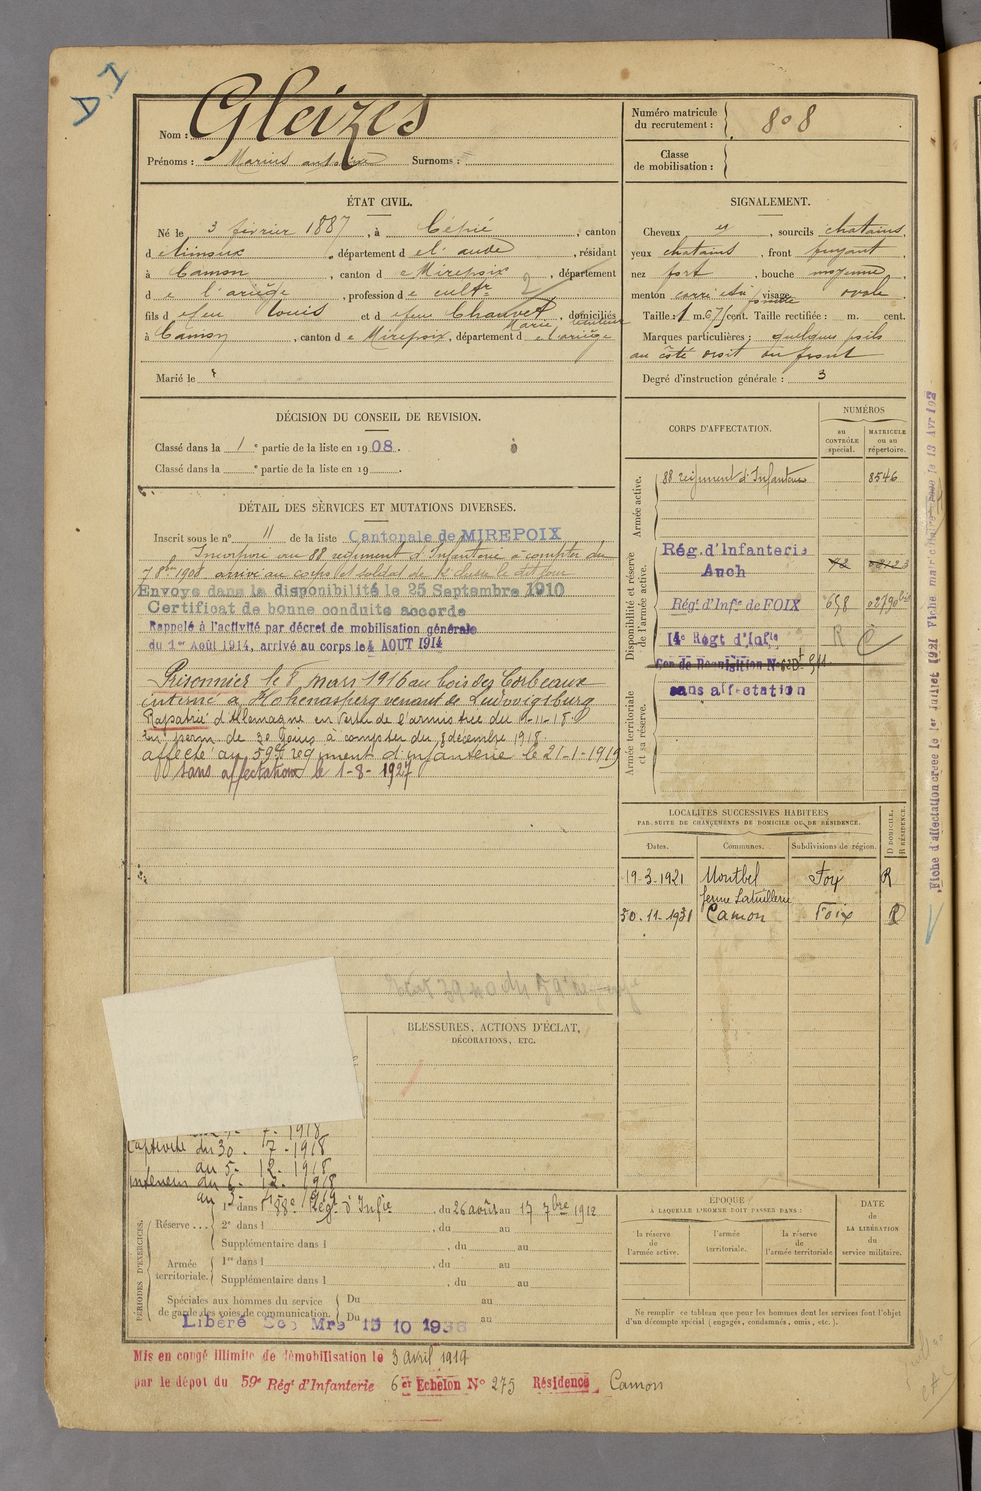 Nom : Gleizes
Prénoms : Marius antoine Surnoms :
Numéro matricule du recrutement : 808
Classe de mobilisation :
ÉTAT CIVIL.
Né le 3 février 1887, à Cépie, canton
d e Limoux, département d e l'aude, résidant
à Camon, canton d e Mirepoix, département
d e l'ariège, profession d e cultr 2
fils d e feu Louis et d e feu Chauvet Marie, domiciliés
à Camon, canton d e Mirepoix, département d e l'ariège
Marié le
SIGNALEMENT.
Cheveux et, sourcils chatains,
yeux chatains, front fuyant,
nez fort, bouche moyenne,
menton visage ovale.
Taille : 1 m. 67 cent. Taille rectifiée : m. cent.
Marques particulières : quelques poils
au côté droit du front
Degré d'instruction générale : 3
DÉCISION DU CONSEIL DE REVISION.
Classé dans la 1e partie de la liste en 1908.
Classé dans la e partie de la liste en 19 .
DÉTAIL DES SERVICES ET MUTATIONS DIVERSES.
Inscrit sous le n° 11 de la liste Cantonale de MIREPOIX
Incorporé au 88 régiment d'Infanterie à compter du
7 8bre 1908 arrivé au corps et soldat de 2e classe le dit jour
Envoyé dans la disponibilité le 25 Septembre 1910
Certificat de bonne conduite accordé
Rappelé à l'activité par décret de mobilisation générale
du 1er Août 1914, arrivé au corps le 4 AOUT 1914
Prisonnier le 8 mars 1916 au bois des Corbeaux
interné à Hohenasperg venant de Ludwigsburg
Rapatrié d'Allemagne en vertu de l'armistice du 11-11-18
En perm de 30 jours à compter du 8 décembre 1918
affecté au 59e régiment d'infanterie le 21-1-1919
sans affectation le 1-8-1927
CORPS D'AFFECTATION.
NUMÉROS
au CONTRÔLE spécial.
MATRICULE ou au répertoire.
Armée active.
88 régiment d'Infanterie 8546
Disponibilité et réserve de l'armée active.
Rég. d'Infanterie
Auch
Régt d'Infie de FOIX 658
14e Régt d'Infie R
Armée territoriale et sa réserve.
sans affectation
LOCALITÉS SUCCESSIVES HABITÉES
PAR SUITE DE CHANGEMENTS DE DOMICILE OU DE RÉSIDENCE.
Dates. Communes. Subdivisions de région. D DOMICILE. R RÉSIDENCE.
19-3-1921 Montbel Foix R
ferme Latuillerie
30-11-1931 Camon Foix R
Fiche d'affectation créée le 1er Juillet 1921
BLESSURES, ACTIONS D'ÉCLAT,
DÉCORATIONS, ETC.
7-1918
captivité du 30-7-1918
au 5-12-1918
intérieur du 6-12-1918
au 3-4-1919
PÉRIODES D'EXERCICES.
Réserve ... 1re dans l 88e Régt d'Infie, du 26 août au 17 7bre 1912
2e dans l , du au
Supplémentaire dans l , du au
Armée territoriale. 1re dans l , du au
Supplémentaire dans l , du au
Spéciales aux hommes du service de garde des voies de communication. Du au
Du au
Libéré Sce Mre 15 10 1936
ÉPOQUE
À LAQUELLE L'HOMME DOIT PASSER DANS :
la réserve de l'armée active.
l'armée territoriale.
la réserve de l'armée territoriale
DATE de LA LIBÉRATION du service militaire.
Ne remplir ce tableau que pour les hommes dont les services font l'objet
d'un décompte spécial (engagés, condamnés, omis, etc.).
Mis en congé illimité de démobilisation le 3 avril 1919
par le dépôt du 59e Régt d'Infanterie 6e Echelon N° 275 Résidence Camon